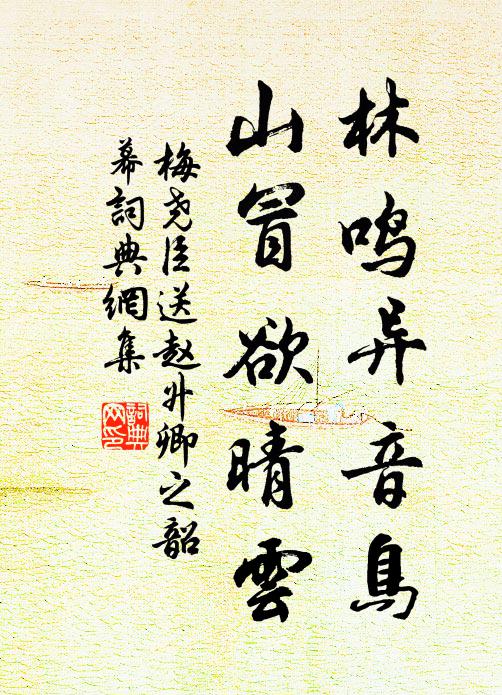 林鸣异音鸟
山冒欲晴雲
梅尧臣送赵升卿之韶
幕詞典網集
詞典网印